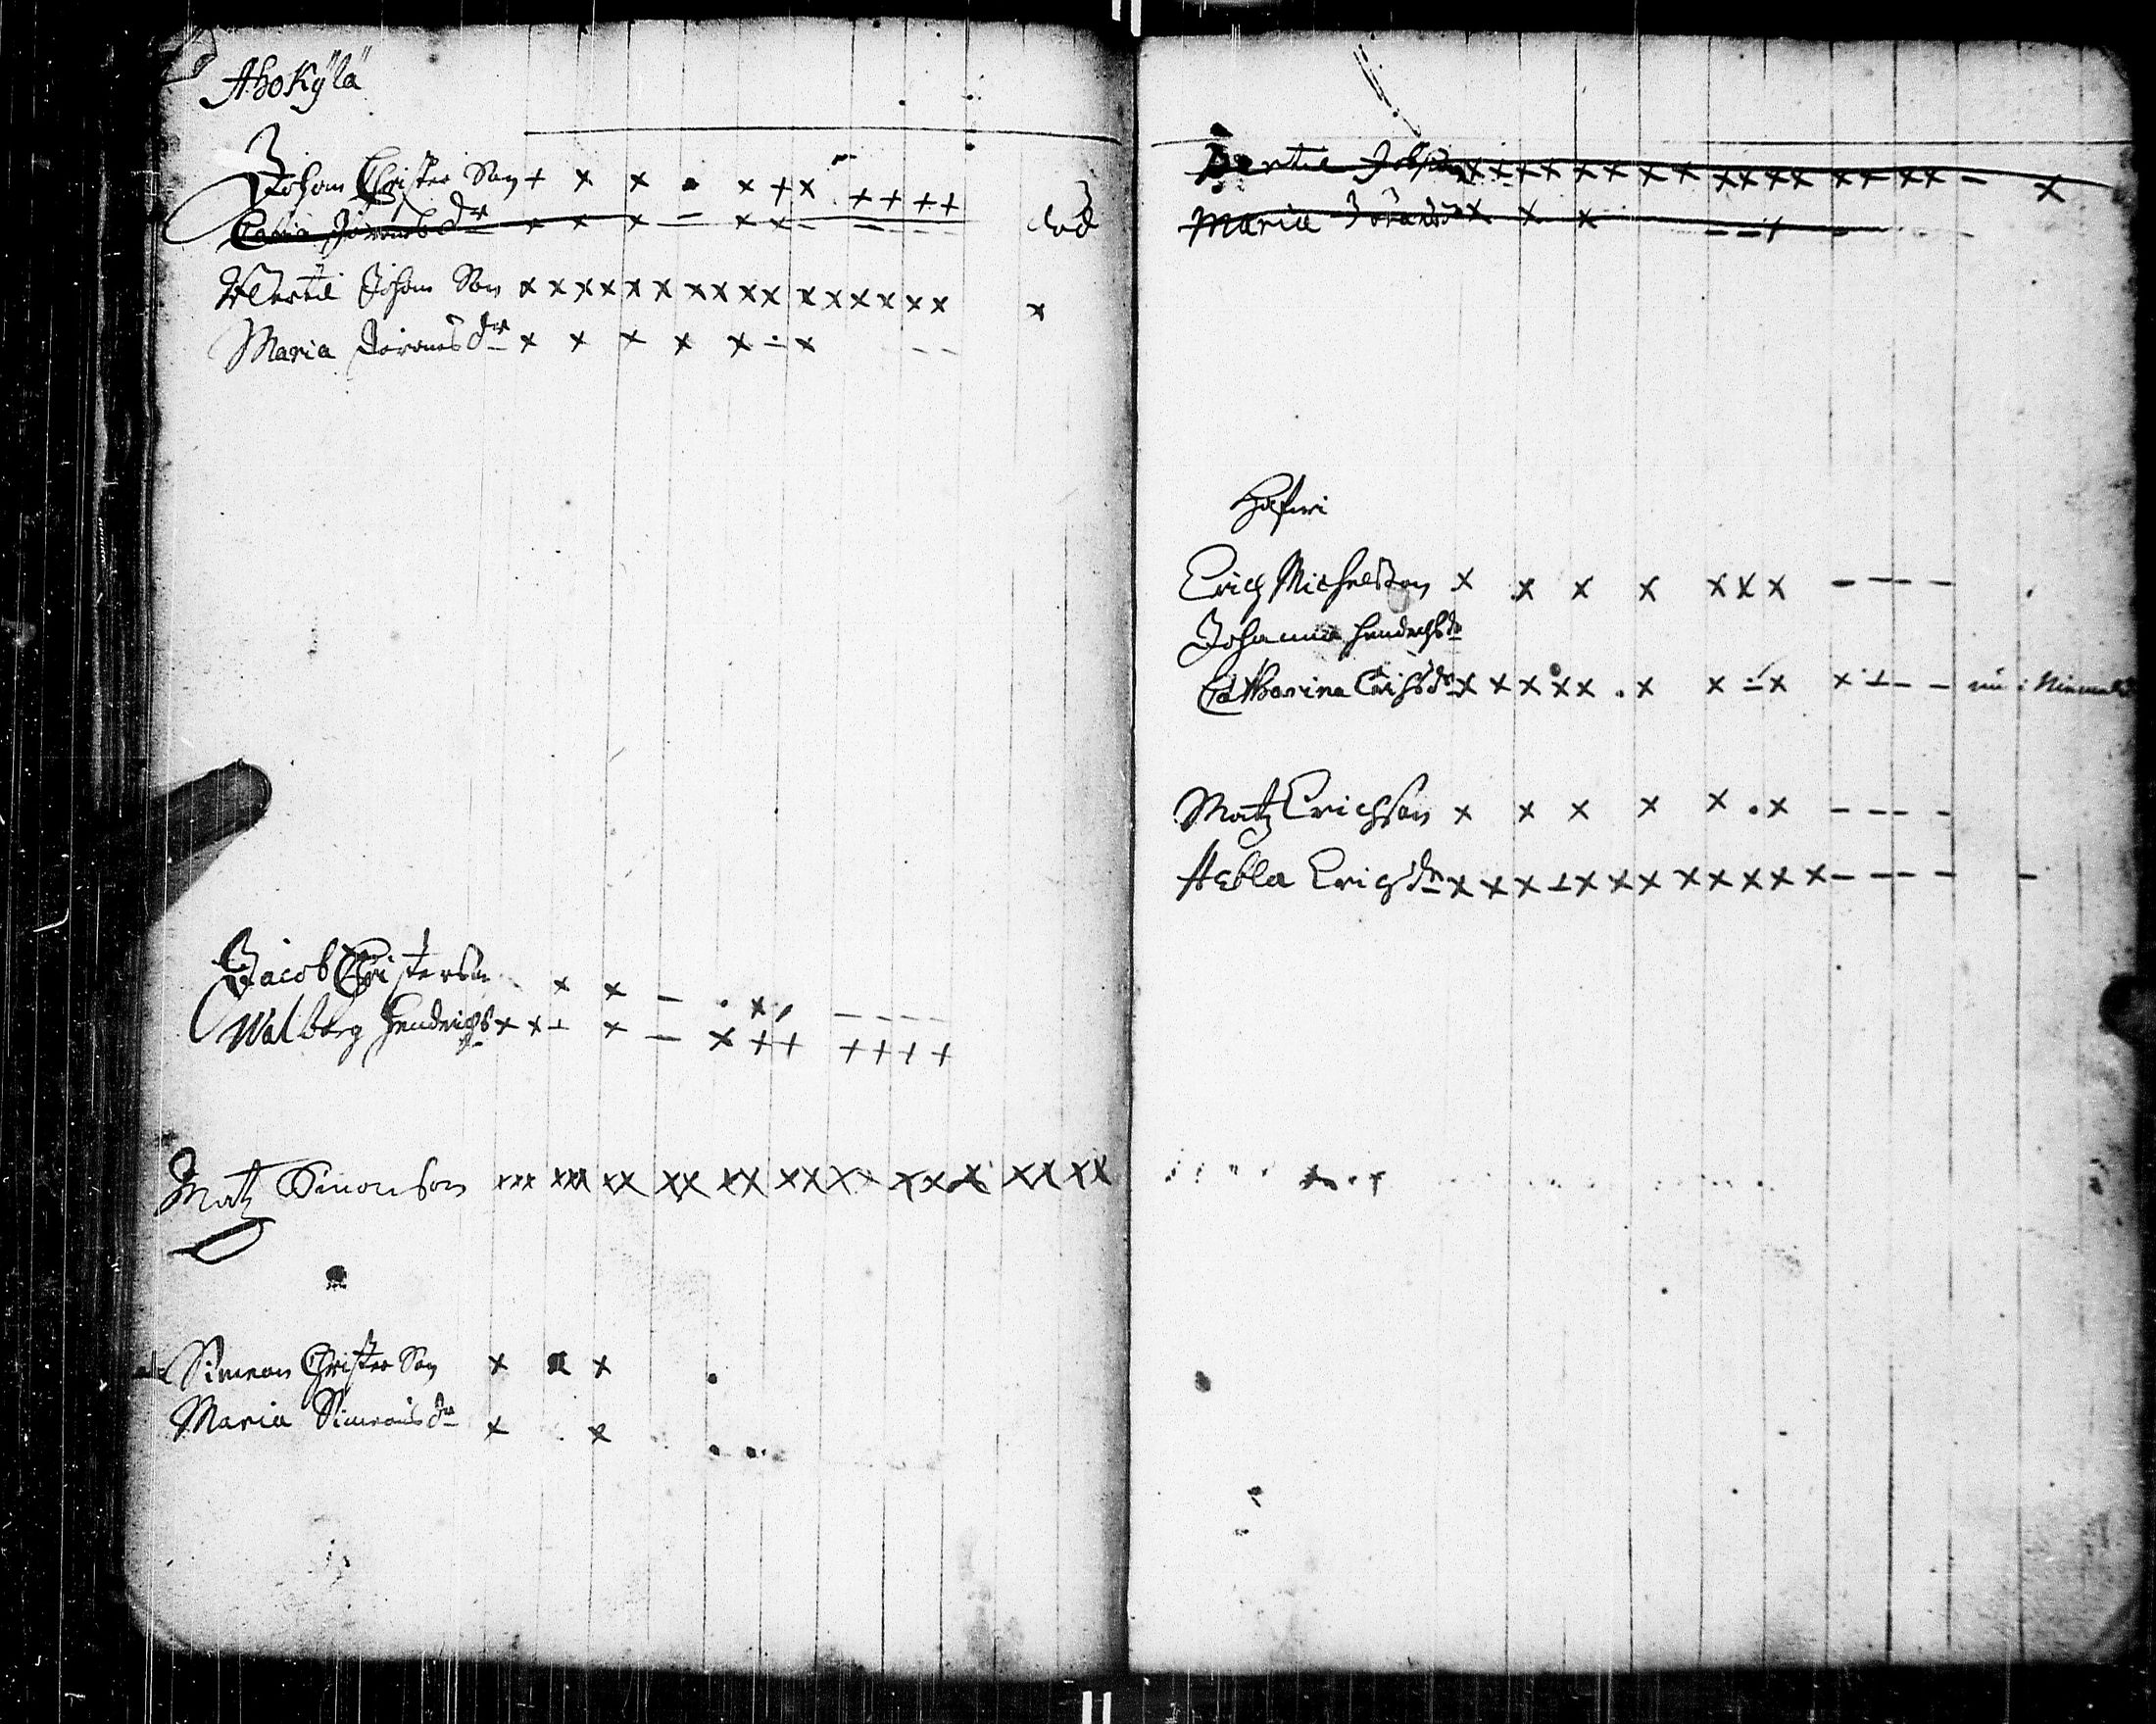 Ahokÿlä
Johan Christer Son + x x x + x + + + +
Carin Jöransdr x x x – x x – – – – död
Bertil Johan Son x x x x x x x x x x x x x x x x x
Maria Jöransdr x x x x x – x – –
Jacob Christerson x x – . x , – – – –
Walborg Hendrichs dr x x x – x + + + + + +
Matz Simonson xxx xxx xx xx xx xx xx xx x xx xx
Simeon Christer Son x x x
Maria Simeonsdr x x
Bertil Johans xx xx xx xx xx xx xx xx – x
Maria Jöransdr x x x – – +
Erich Michelson x x x x x x x – – –
Johanna Hendrichsdr
Catharina Erichsdr x x x x x . x x – x x – – –
Matz Erichson x x x x x . x – – – –
Aebla Erichsdr x x x x x x x x x x x – – – – –